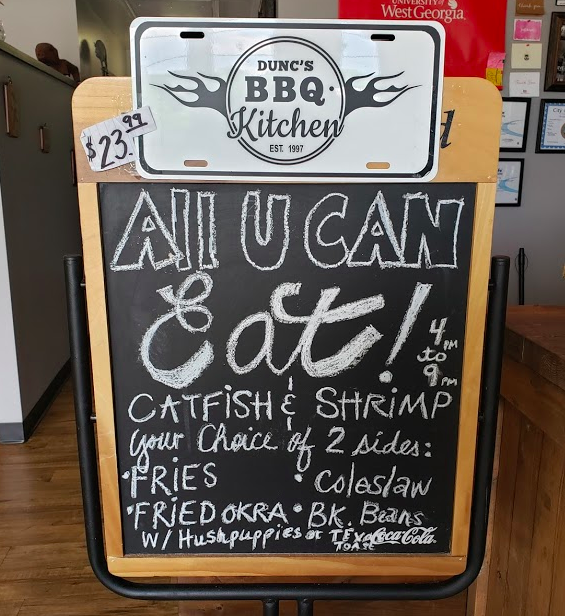 UNIVERSITY of
West Georgia
DUNC'S
BBQ
Kitchen
EST. 1997
$23.99
All U CAN
Eat!
4 PM
to
9 PM
CATFISH & SHRIMP
your Choice of 2 sides:
• FRIES • Coleslaw
• FRIED OKRA • BK. Beans
W/ Hushpuppies or TEXAS TOAST
Coca-Cola